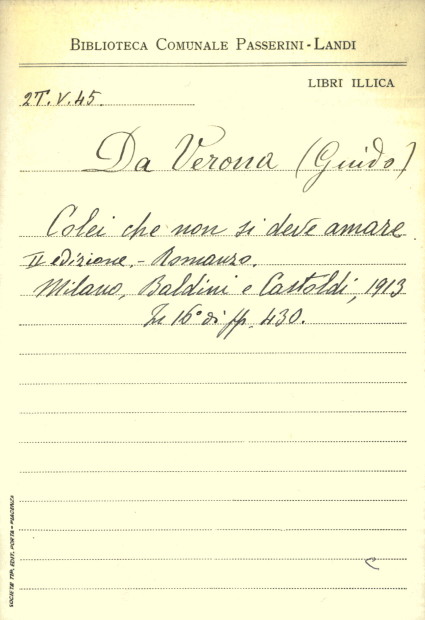 BIBLIOTECA COMUNALE PASSERINI-LANDI
LIBRI ILLICA
2T.V.45.
Da Verona (Guido)
Colei che non si deve amare
II edizione. - Romanzo.
Milano, Baldini e Castoldi, 1913
In 16° di pp. 430.
SOCIETÀ TIP. EDIT. PORTA - PIACENZA